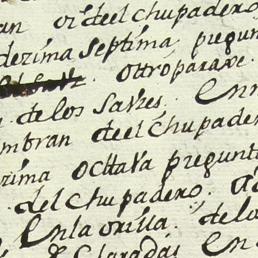 an oi deel chupadero,
dezima septima, pregun
ottro parave.
de los sauzes. En
mbran deel chupader
zima octtava pregunt
del chupadero,
En la orilla, de lo
Claradas en